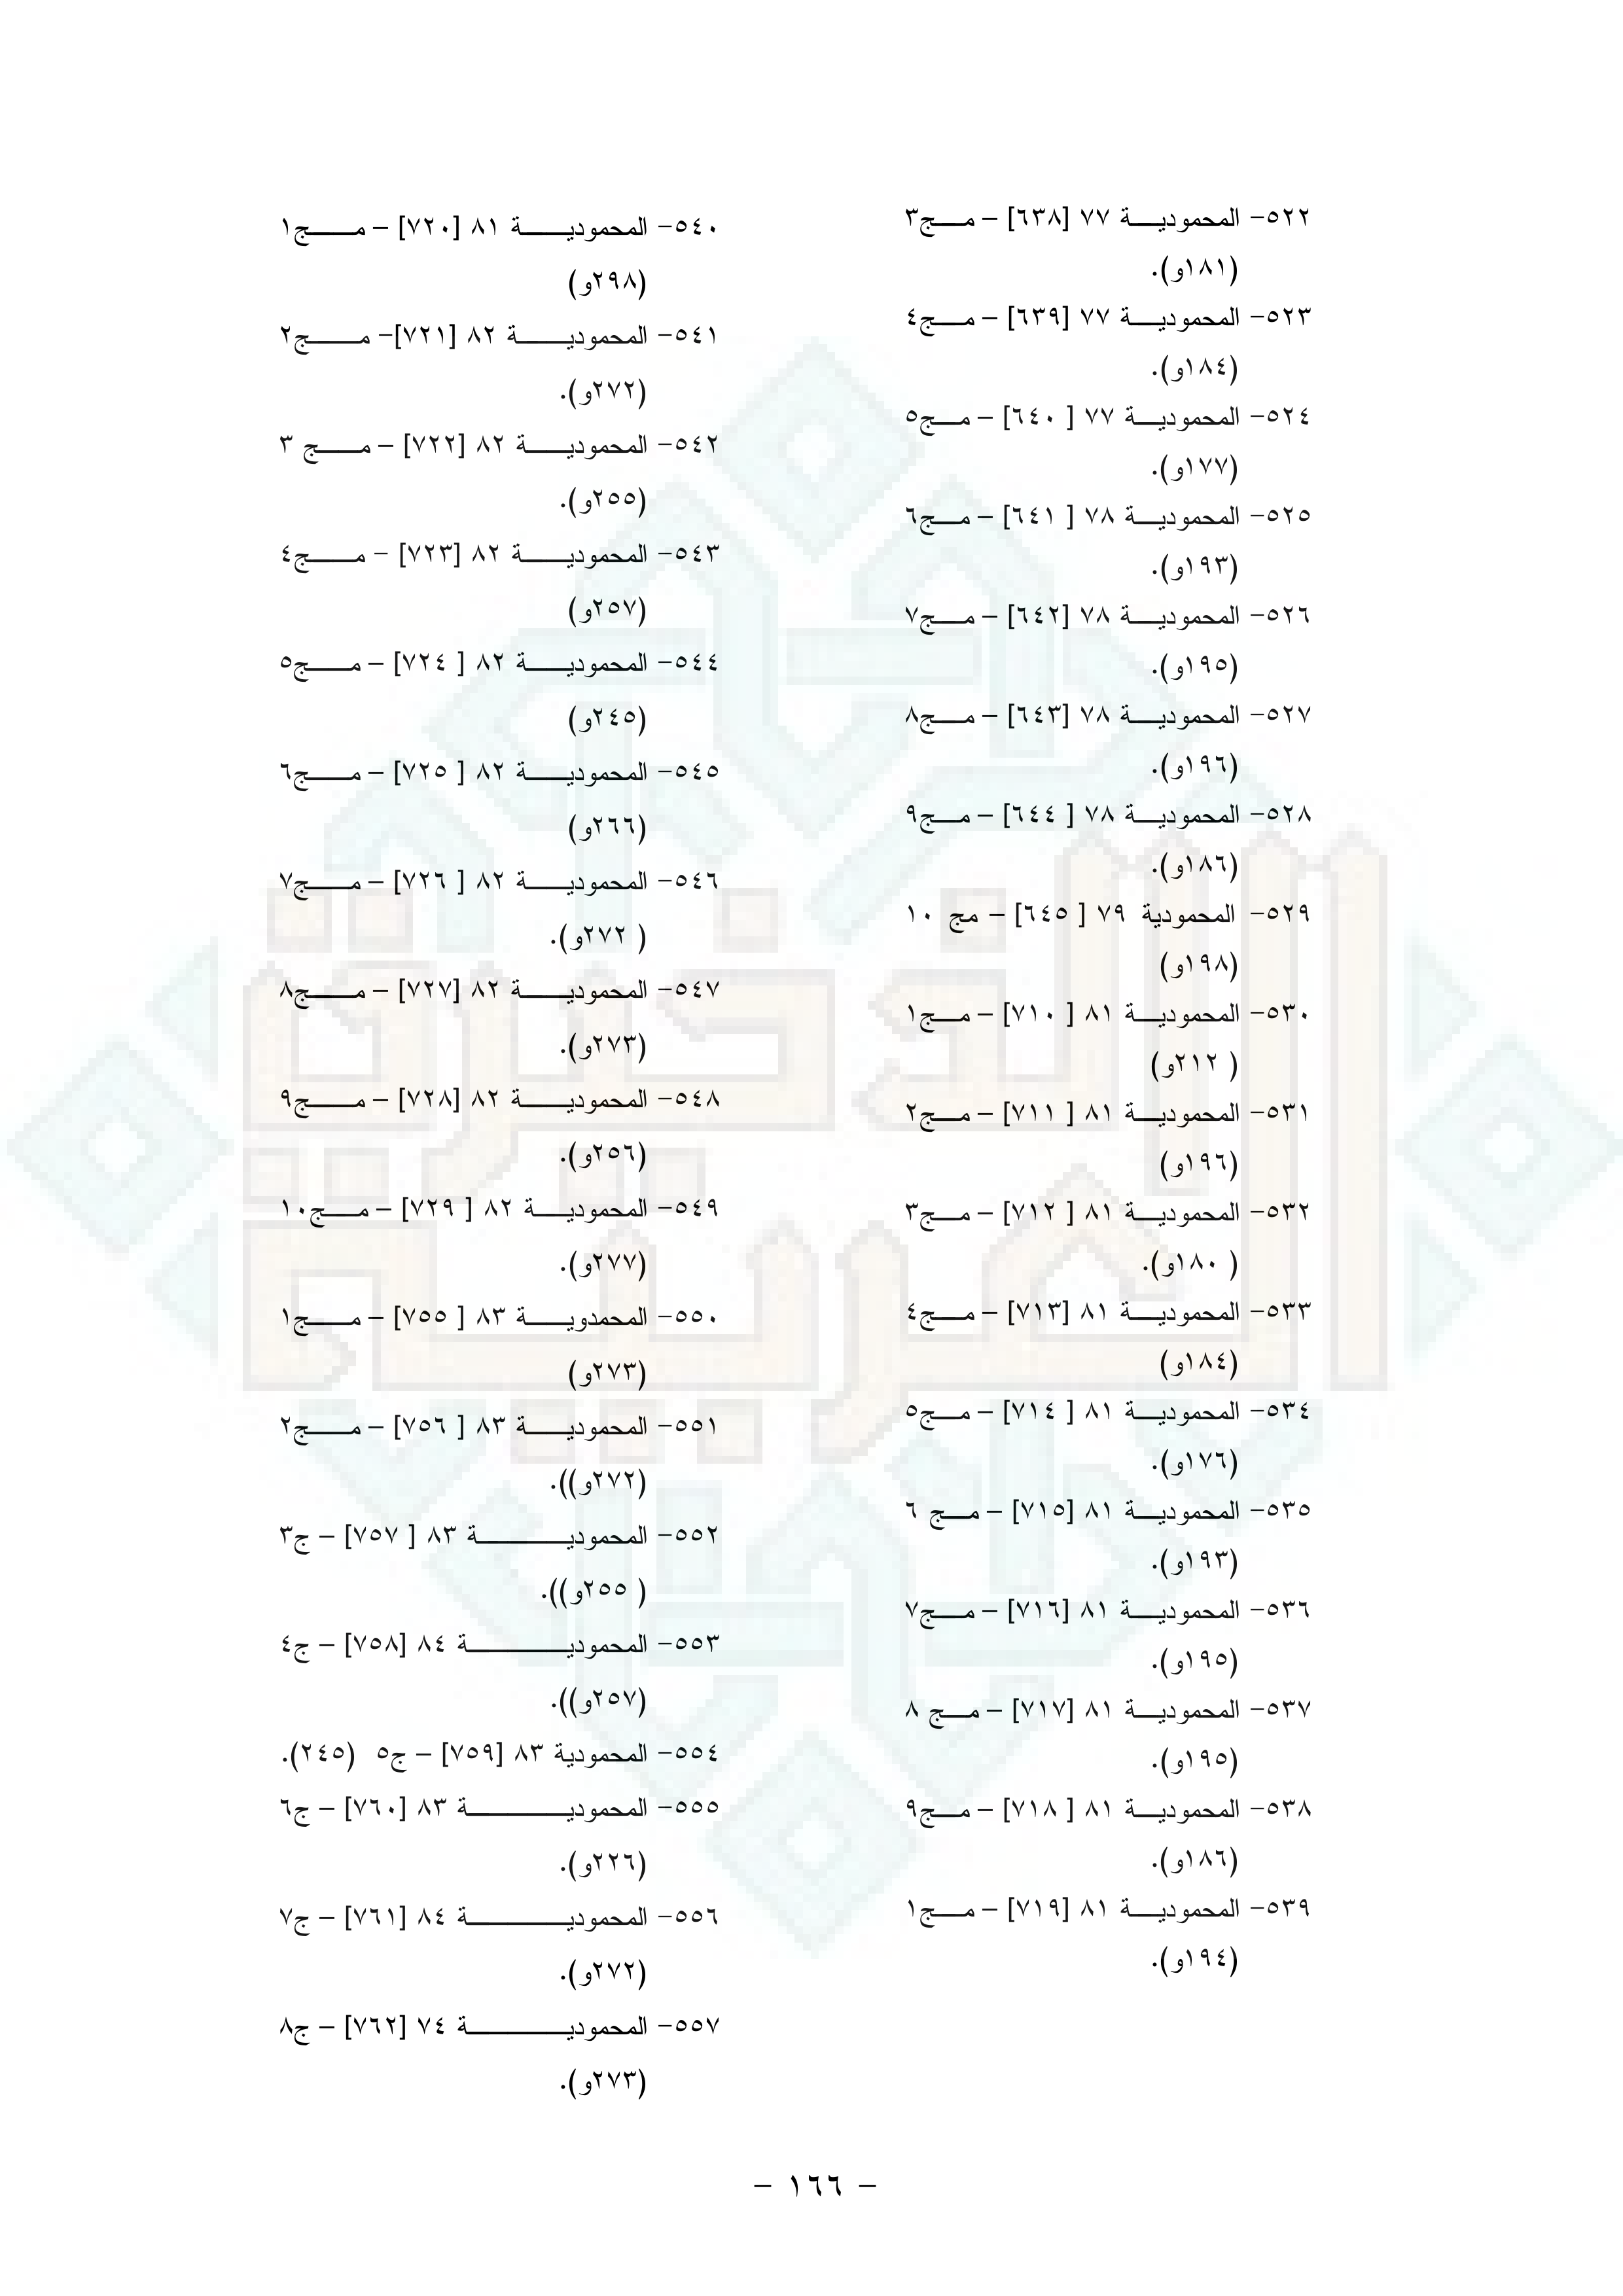 ٥٢٢- المحموديـــة ٧٧ [٦٣٨] – مـــج٣
(١٨١و).
٥٢٣- المحموديـــة ٧٧ [٦٣٩] – مـــج٤
(١٨٤و).
٥٢٤- المحموديـــة ٧٧ [ ٦٤٠] – مـــج٥
(١٧٧و).
٥٢٥- المحموديـــة ٧٨ [ ٦٤١] – مـــج٦
(١٩٣و).
٥٢٦- المحموديـــة ٧٨ [٦٤٢] – مـــج٧
(١٩٥و).
٥٢٧- المحموديـــة ٧٨ [٦٤٣] – مـــج٨
(١٩٦و).
٥٢٨- المحموديـــة ٧٨ [ ٦٤٤] – مـــج٩
(١٨٦و).
٥٢٩- المحمودية ٧٩ [ ٦٤٥] – مج ١٠
(١٩٨و)
٥٣٠- المحموديـــة ٨١ [ ٧١٠] – مـــج١
( ٢١٢و)
٥٣١- المحموديـــة ٨١ [ ٧١١] – مـــج٢
(١٩٦و)
٥٣٢- المحموديـــة ٨١ [ ٧١٢] – مـــج٣
( ١٨٠و).
٥٣٣- المحموديـــة ٨١ [٧١٣] – مـــج٤
(١٨٤و)
٥٣٤- المحموديـــة ٨١ [ ٧١٤] – مـــج٥
(١٧٦و).
٥٣٥- المحموديـــة ٨١ [٧١٥] – مـــج ٦
(١٩٣و).
٥٣٦- المحموديـــة ٨١ [٧١٦] – مـــج٧
(١٩٥و).
٥٣٧- المحموديـــة ٨١ [٧١٧] – مـــج ٨
(١٩٥و).
٥٣٨- المحموديـــة ٨١ [ ٧١٨] – مـــج٩
(١٨٦و).
٥٣٩- المحموديـــة ٨١ [٧١٩] – مـــج١
(١٩٤و).
٥٤٠- المحموديـــة ٨١ [٧٢٠] – مـــج١
(٢٩٨و)
٥٤١- المحموديـــة ٨٢ [٧٢١]- مـــج٢
(٢٧٢و).
٥٤٢- المحموديـــة ٨٢ [٧٢٢] – مـــج ٣
(٢٥٥و).
٥٤٣- المحموديـــة ٨٢ [٧٢٣] - مـــج٤
(٢٥٧و)
٥٤٤- المحموديـــة ٨٢ [ ٧٢٤] – مـــج٥
(٢٤٥و)
٥٤٥- المحموديـــة ٨٢ [ ٧٢٥] – مـــج٦
(٢٦٦و)
٥٤٦- المحموديـــة ٨٢ [ ٧٢٦] – مـــج٧
( ٢٧٢و).
٥٤٧- المحموديـــة ٨٢ [٧٢٧] – مـــج٨
(٢٧٣و).
٥٤٨- المحموديـــة ٨٢ [٧٢٨] – مـــج٩
(٢٥٦و).
٥٤٩- المحموديـــة ٨٢ [ ٧٢٩] – مـــج١٠
(٢٧٧و).
٥٥٠- المحمدويـــة ٨٣ [ ٧٥٥] – مـــج١
(٢٧٣و)
٥٥١- المحموديـــة ٨٣ [ ٧٥٦] – مـــج٢
(٢٧٢و)).
٥٥٢- المحموديـــة ٨٣ [ ٧٥٧] – ج٣
( ٢٥٥و)).
٥٥٣- المحموديـــة ٨٤ [٧٥٨] – ج٤
(٢٥٧و)).
٥٥٤- المحمودية ٨٣ [٧٥٩] – ج٥ (٢٤٥).
٥٥٥- المحموديـــة ٨٣ [٧٦٠] – ج٦
(٢٢٦و).
٥٥٦- المحموديـــة ٨٤ [٧٦١] – ج٧
(٢٧٢و).
٥٥٧- المحموديـــة ٧٤ [٧٦٢] – ج٨
(٢٧٣و).
الذخيرة
العربية
- ١٦٦ -